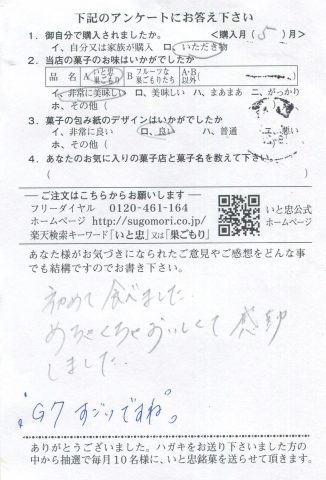 下記のアンケートにお答え下さい
1．御自分で購入されましたか。 <購入月( 5 )月>
イ、自分又は家族が購入 ロ、いただき物
2．当店の菓子のお味はいかがでしたか
品 名 A いと忠巣ごもり B フルーツな巣ごもりたち A・B以外( )
イ、非常に美味しい ロ、美味しい ハ、まあまあ ニ、がっかり
ホ、その他（
3．菓子の包み紙のデザインはいかがでしたか
イ、非常に良い ロ、良い ハ、普通 ニ、悪い
ホ、その他（
4．あなたのお気に入りの菓子店と菓子名を教えて下さい。
（
ご注文はこちらからお願いします
フリーダイヤル 0120-461-164
ホームページ http://sugomori.co.jp/
楽天検索キーワード「いと忠」又は「巣ごもり」
いと忠公式
ホームページ
あなた様がお気づきになられたご意見やご感想をどんな事
でも結構ですのでお書き下さい。
初めて食べました。
めちゃくちゃおいしくて感動
しました。
"G7 すごいですね"。
ありがとうございました。ハガキをお送り下さいました方の
中から抽選で毎月10名様に、いと忠銘菓を送らせて頂きます。